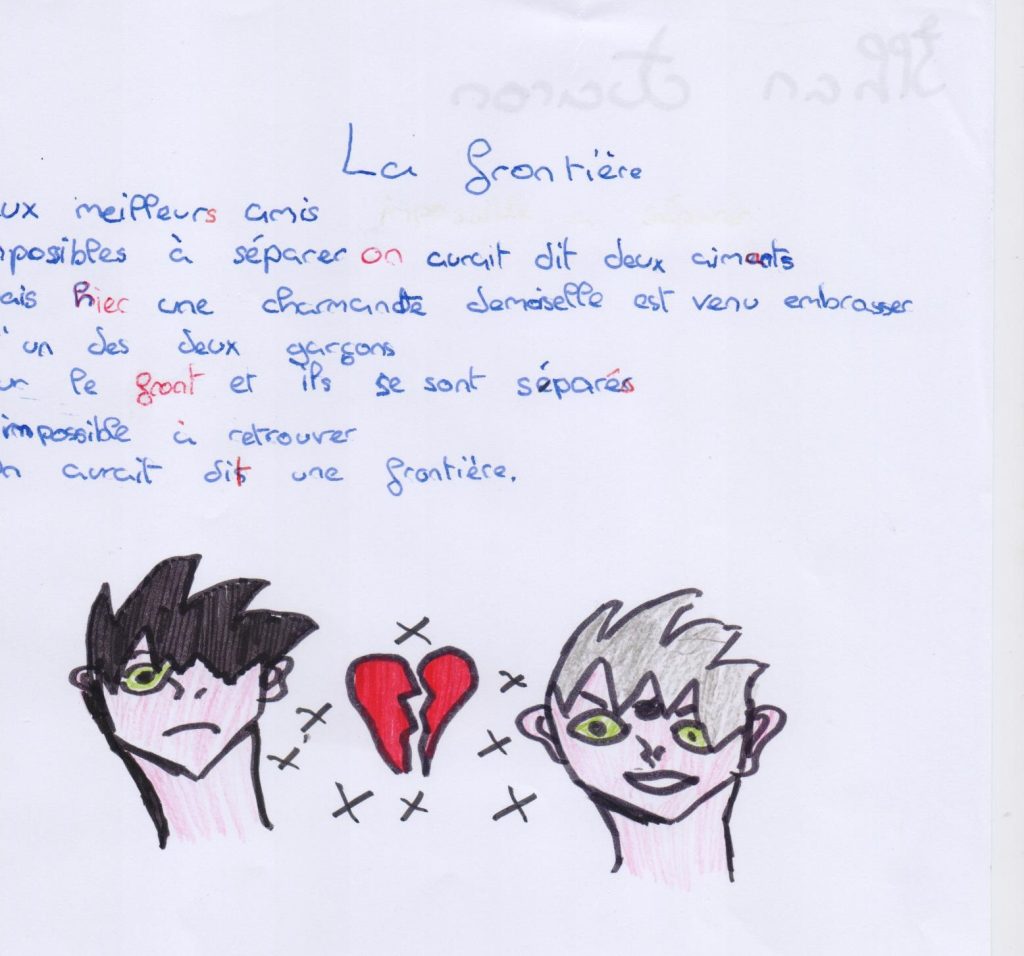 La frontière
ux meilleurs amis
possibles à séparer on aurait dit deux aimants
ais hier une charmande demoiselle est venu embrasser
'un des deux garçons
ur le front et ils se sont séparés
impossible à retrouver
n aurait dit une frontière.